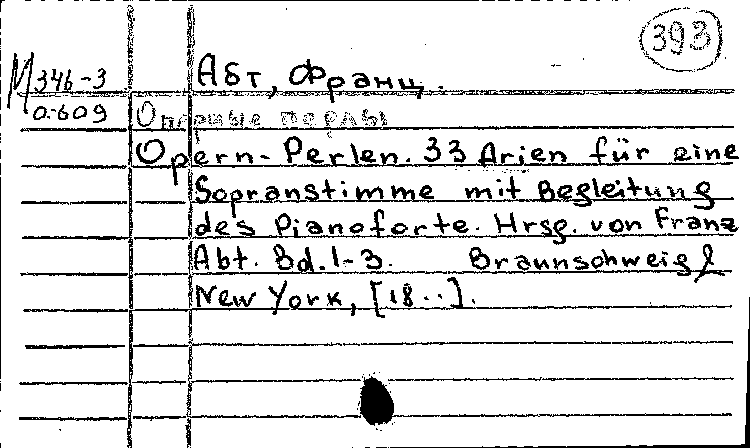 393
М 346-3
0-609
Абт, Франц.
Оперные перлы
Opern-Perlen. 33 Arien für eine
Sopranstimme mit Begleitung
des Pianoforte. Hrsg. von Franz
Abt. Bd. 1-3. Braunschweig &
New York, [18..].